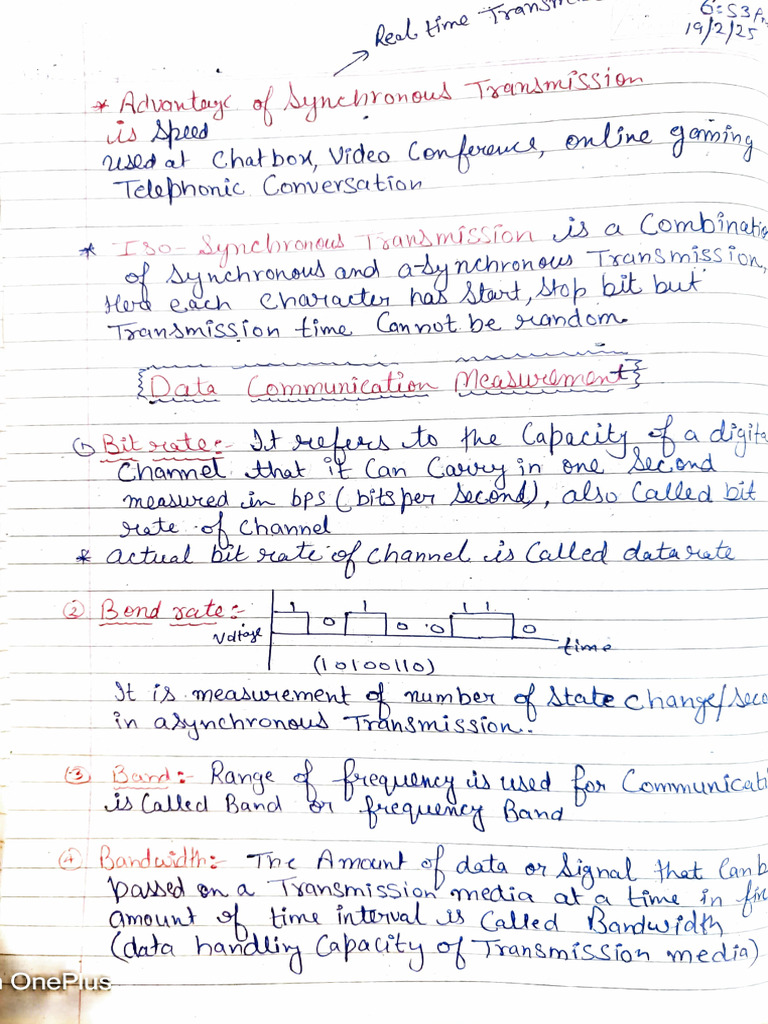 Real time
19/2/25
* Advantage of Synchronous Transmission
is Speed
used at Chatbox, Video Conference, online gaming
Telephonic Conversation
* Iso-Synchronous Transmission is a Combinatio
of Synchronous and a-Synchronous Transmission,
Here each Character has Start, Stop bit but
Transmission time Cannot be random.
Data Communication Measurement
① Bit rate:- It refers to the Capacity of a digita
Channel that it Can Carry in one Second
measured in bps (bits per Second), also Called bit
rate of Channel
* actual bit rate of channel is Called data rate
② Bond rate:-
1 0 1 0 0 1 1 0
Voltage
time
(10100110)
It is measurement of number of State change/Seco
in asynchronous Transmission.
③ Band:- Range of frequency is used for Communicati
is Called Band or frequency Band
④ Bandwidth:- The Amount of data or Signal that Can b
passed on a Transmission media at a time in
amount of time interval is Called Bandwidth
(data handling Capacity of Transmission media)
OnePlus